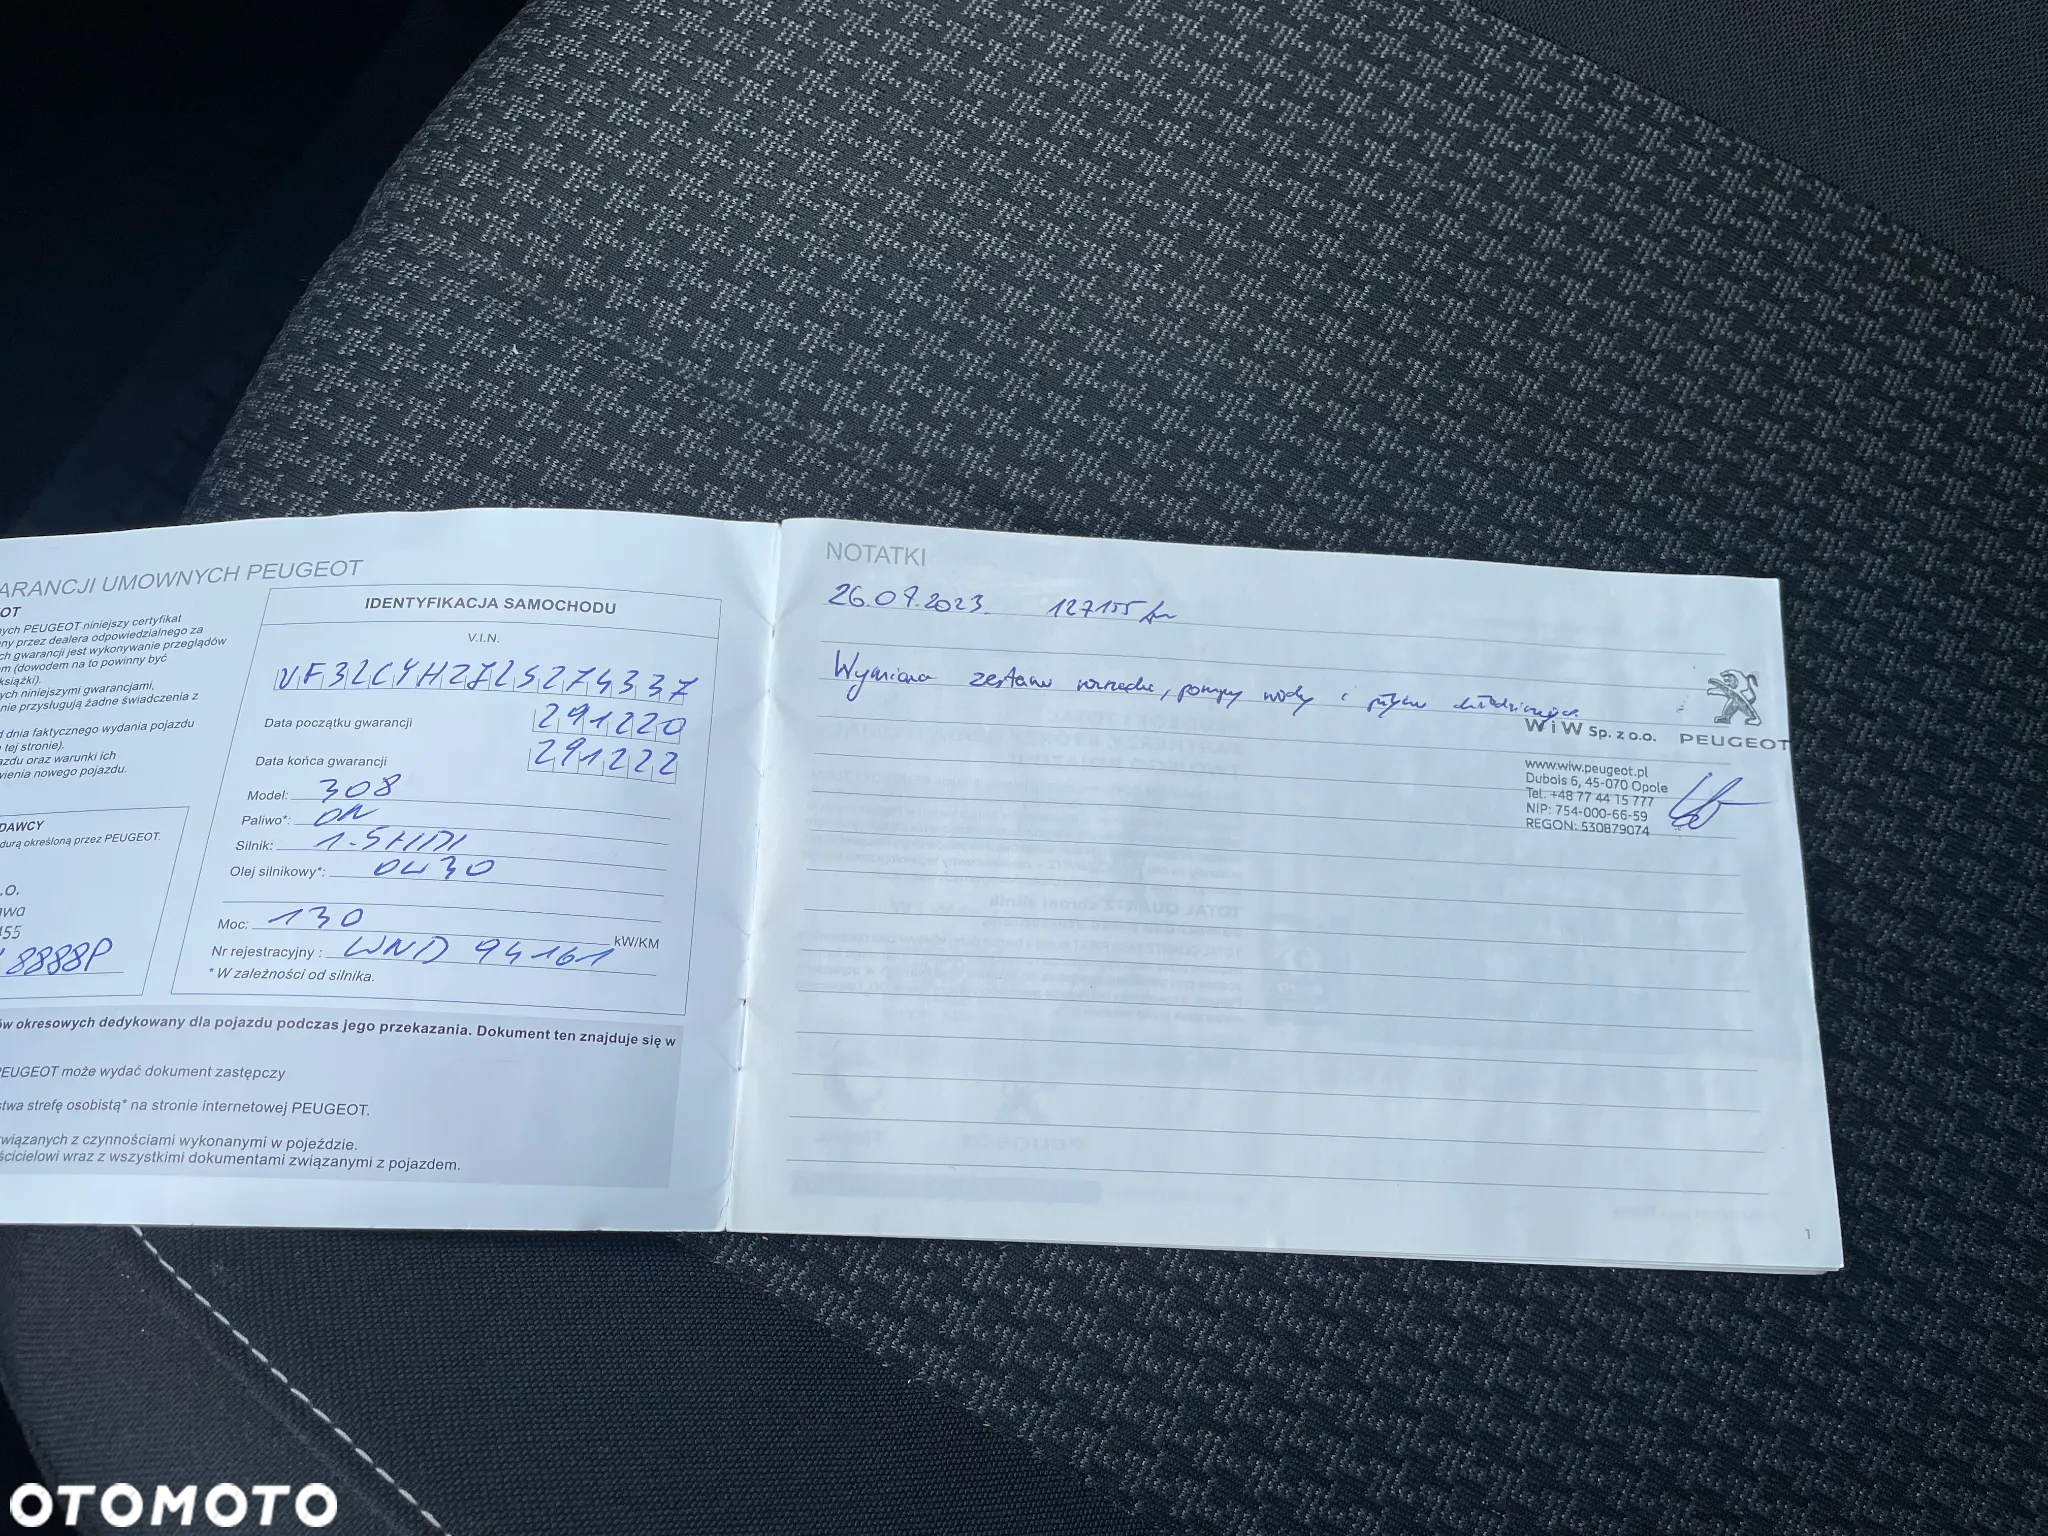 ARANCJI UMOWNYCH PEUGEOT
OT
nych PEUGEOT niniejszy certyfikat
ny przez dealera odpowiedzialnego za
ch gwarancji jest wykonywanie przeglądów
m (dowodem na to powinny być
książki).
ych niniejszymi gwarancjami,
nie przysługują żadne świadczenia z
d dnia faktycznego wydania pojazdu
tej stronie).
azdu oraz warunki ich
wienia nowego pojazdu.
DAWCY
durą określoną przez PEUGEOT.
.O.
awa
455
8888P
IDENTYFIKACJA SAMOCHODU
V.I.N.
VF3LCYHZJLS274337
Data początku gwarancji 291220
Data końca gwarancji 291222
Model: 308
Paliwo*: ON
Silnik: 1.5HDI
Olej silnikowy*: 0W30
Moc: 130 kW/KM
Nr rejestracyjny : WND 94161
* W zależności od silnika.
ów okresowych dedykowany dla pojazdu podczas jego przekazania. Dokument ten znajduje się w
PEUGEOT może wydać dokument zastępczy
stwa strefę osobistą* na stronie internetowej PEUGEOT.
wiązanych z czynnościami wykonanymi w pojeździe.
ścicielowi wraz z wszystkimi dokumentami związanymi z pojazdem.
NOTATKI
26.07.2023. 127155 km
Wymiana zestawu rozrządu, pompy wody i płynu chłodzącego
WiW Sp. z o.o. PEUGEOT
www.wiw.peugeot.pl
Dubois 6, 45-070 Opole
Tel. +48 77 44 15 777
NIP: 754-000-66-59
REGON: 530879074
1
OTOMOTO